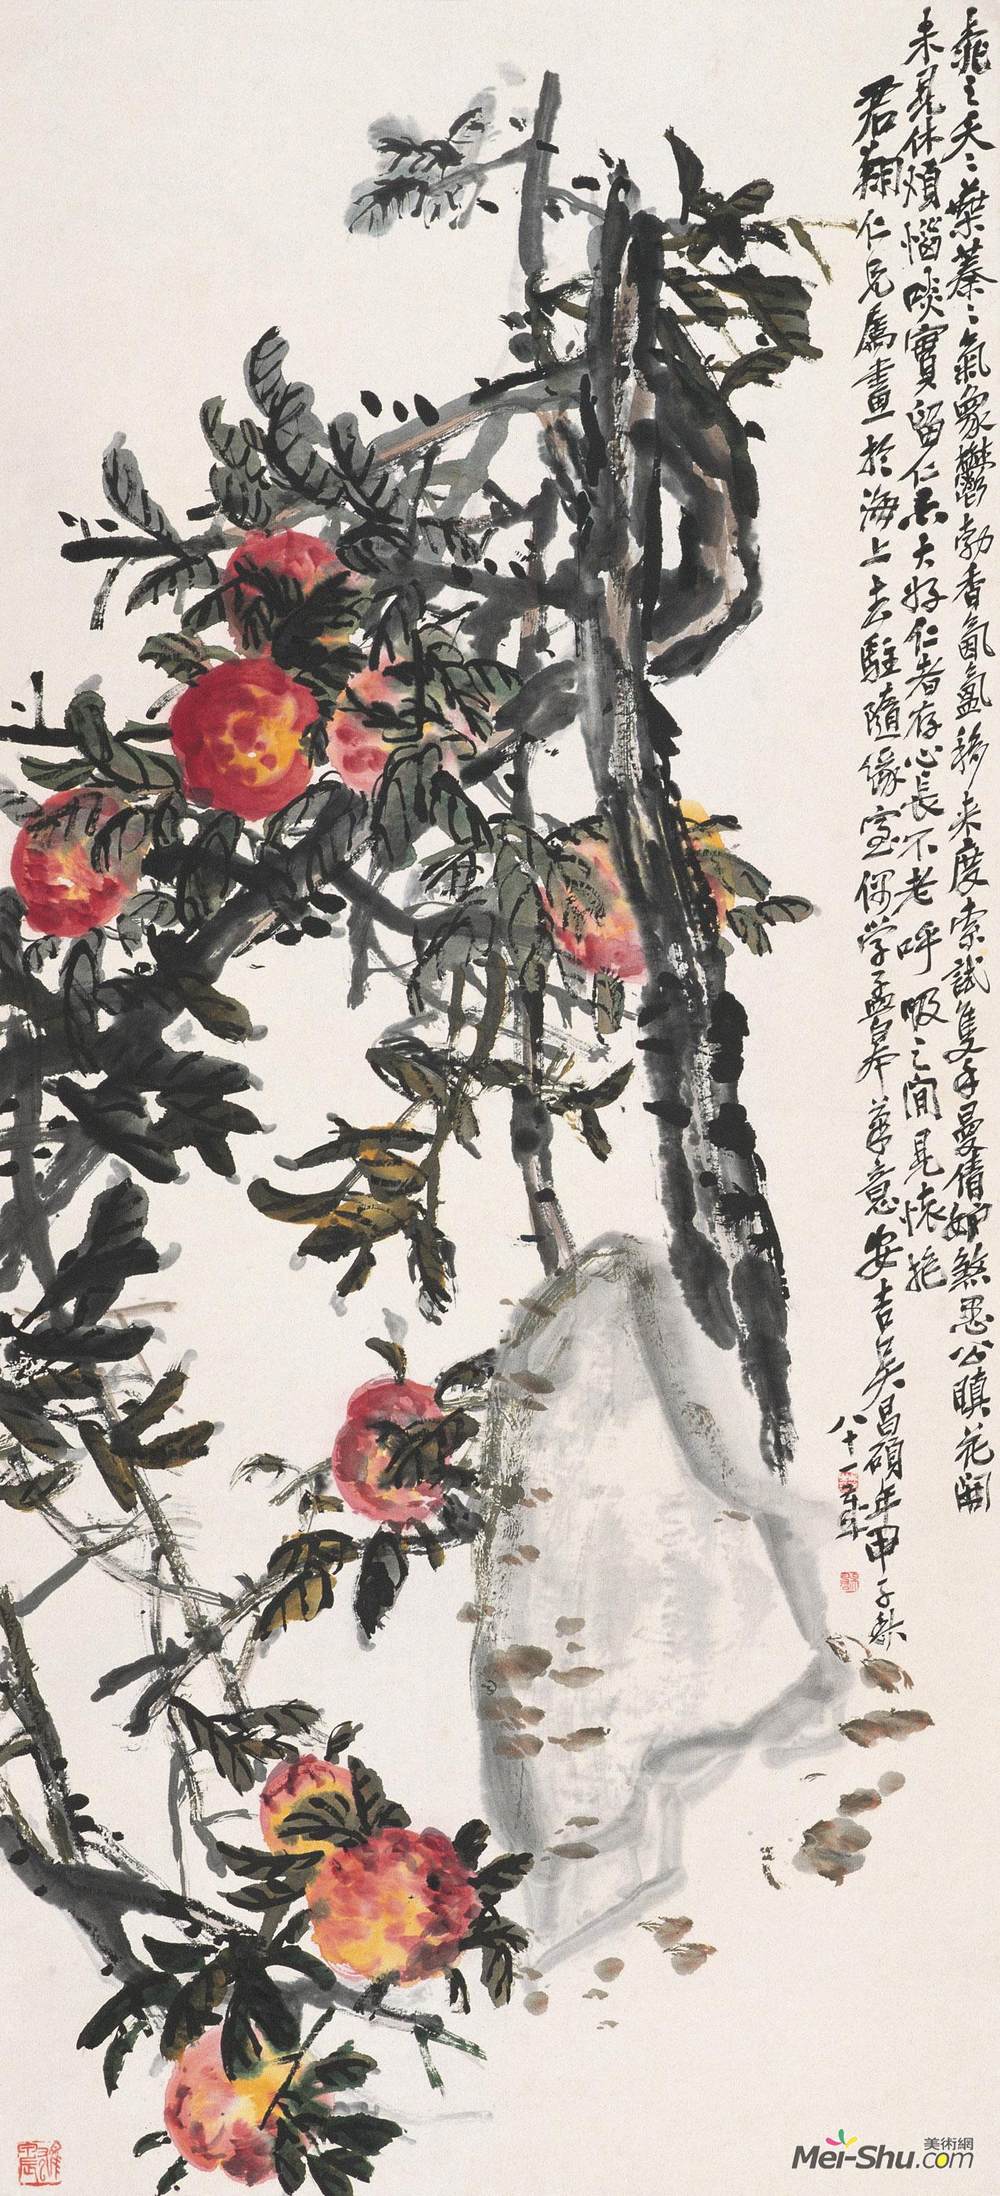 桃之夭夭葉蓁蓁氣象鬱勃香氤氳移來度索試隻手曼倩妒煞愚公瞋花開
未見休煩惱啖實留仁亦大好仁者存心長不老呼吸之間見懷抱
君翔仁兄屬畫於海上去駐隨緣室偶學孟皋筆意安吉吳昌碩年
八十一
甲子秋
美術網
Mei-Shu.com